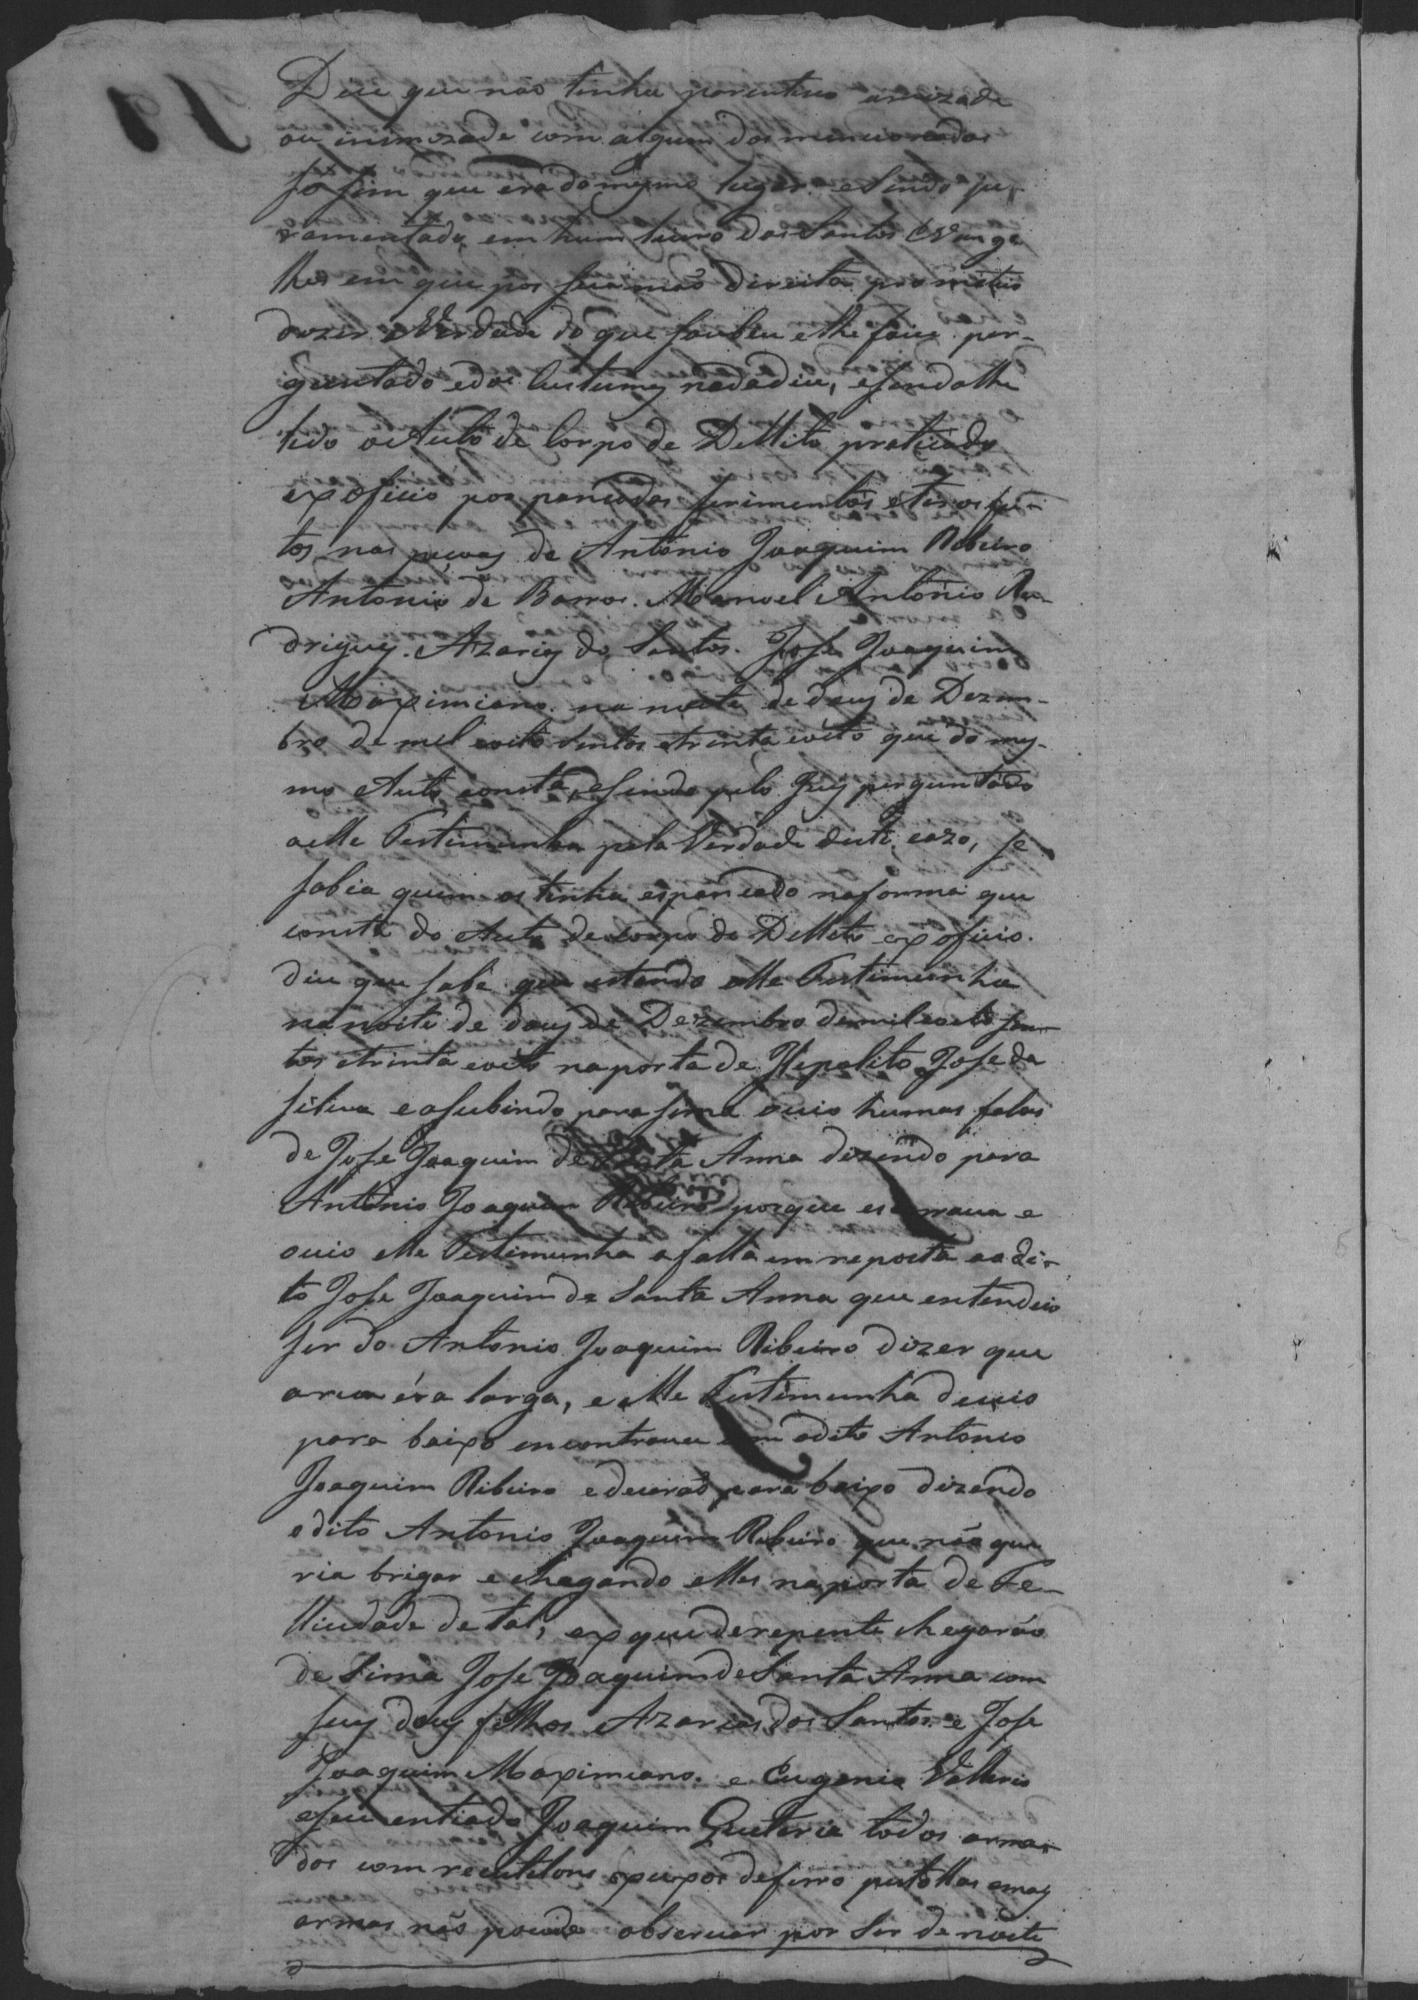 Dice que nao tinha parentesco amizade
ou inimizade com algum dos mencionados
so sim que era do mesmo lugar e sendo ju-
ramentado em hum livro dos Santos Evange
lhos em que pos sua mão direita prometeu
dizer a Verdade do que soubeu e lhe face per-
guntado e dos Custumes nada dice, e sendolhe
lido o Auto de Corpo de Dellito praticado
ex oficio por pancadas ferimentos e tiros fei-
tos nas pecoas de Antonio Joaquim Ribeiro
Antonio de Barros. Manoel Antonio Ro-
drigues. Azarias dos Santos. Jose Joaquim
Maximiano na noite de dous de Dezem-
bro de mil oito Sentos e trinta e oito que do mes-
mo Auto consta, e sendo pelo Juiz perguntado
a elle Testimunha pela Verdade deste cazo, se
sabia quem os tinha espancado na forma que
consta do Auto de corpo de Dellito ex oficio.
dice que sabe que estando elle Testimunha
na noite de dous de Dezembro de mil e oito sen-
tos e trinta e oito na porta de Hepolito Jose da
Silva e a subindo para sima ouvio humas falas
de Jose Joaquim de Santa Anna dizendo para
Antonio Joaquim Ribeiro porque escarrava e
ouvio elle Testimunha a falla em reposta ao di-
to Jose Joaquim de Santa Anna que entendeio
ser do Antonio Joaquim Ribeiro dizer que
a rua éra larga, e elle Testimunha deceio
para baixo encontrou com o dito Antonio
Joaquim Ribeiro e decerão para baixo dizendo
o dito Antonio Joaquim Ribeiro que não que
ria brigar e chegando elles na porta de Fe-
llicidade de tal, ex que derepente chegarão
de Sima Jose Joaquim de Santa Anna com
seus dous filhos Azarias dos Santos e Jose
Joaquim Maximiano. e Eugenio Vallerio
e seu entiado Joaquim Quiteria todos arma-
dos com recutelons expupos de ferro pistollas e mais
armas não poude observar por Ser de noite